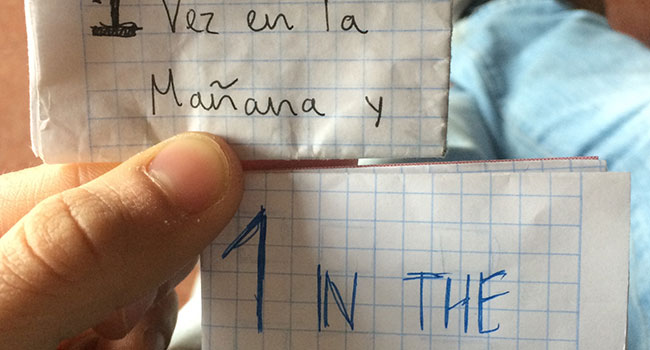 1 Vez en la
Mañana y
1 IN THE